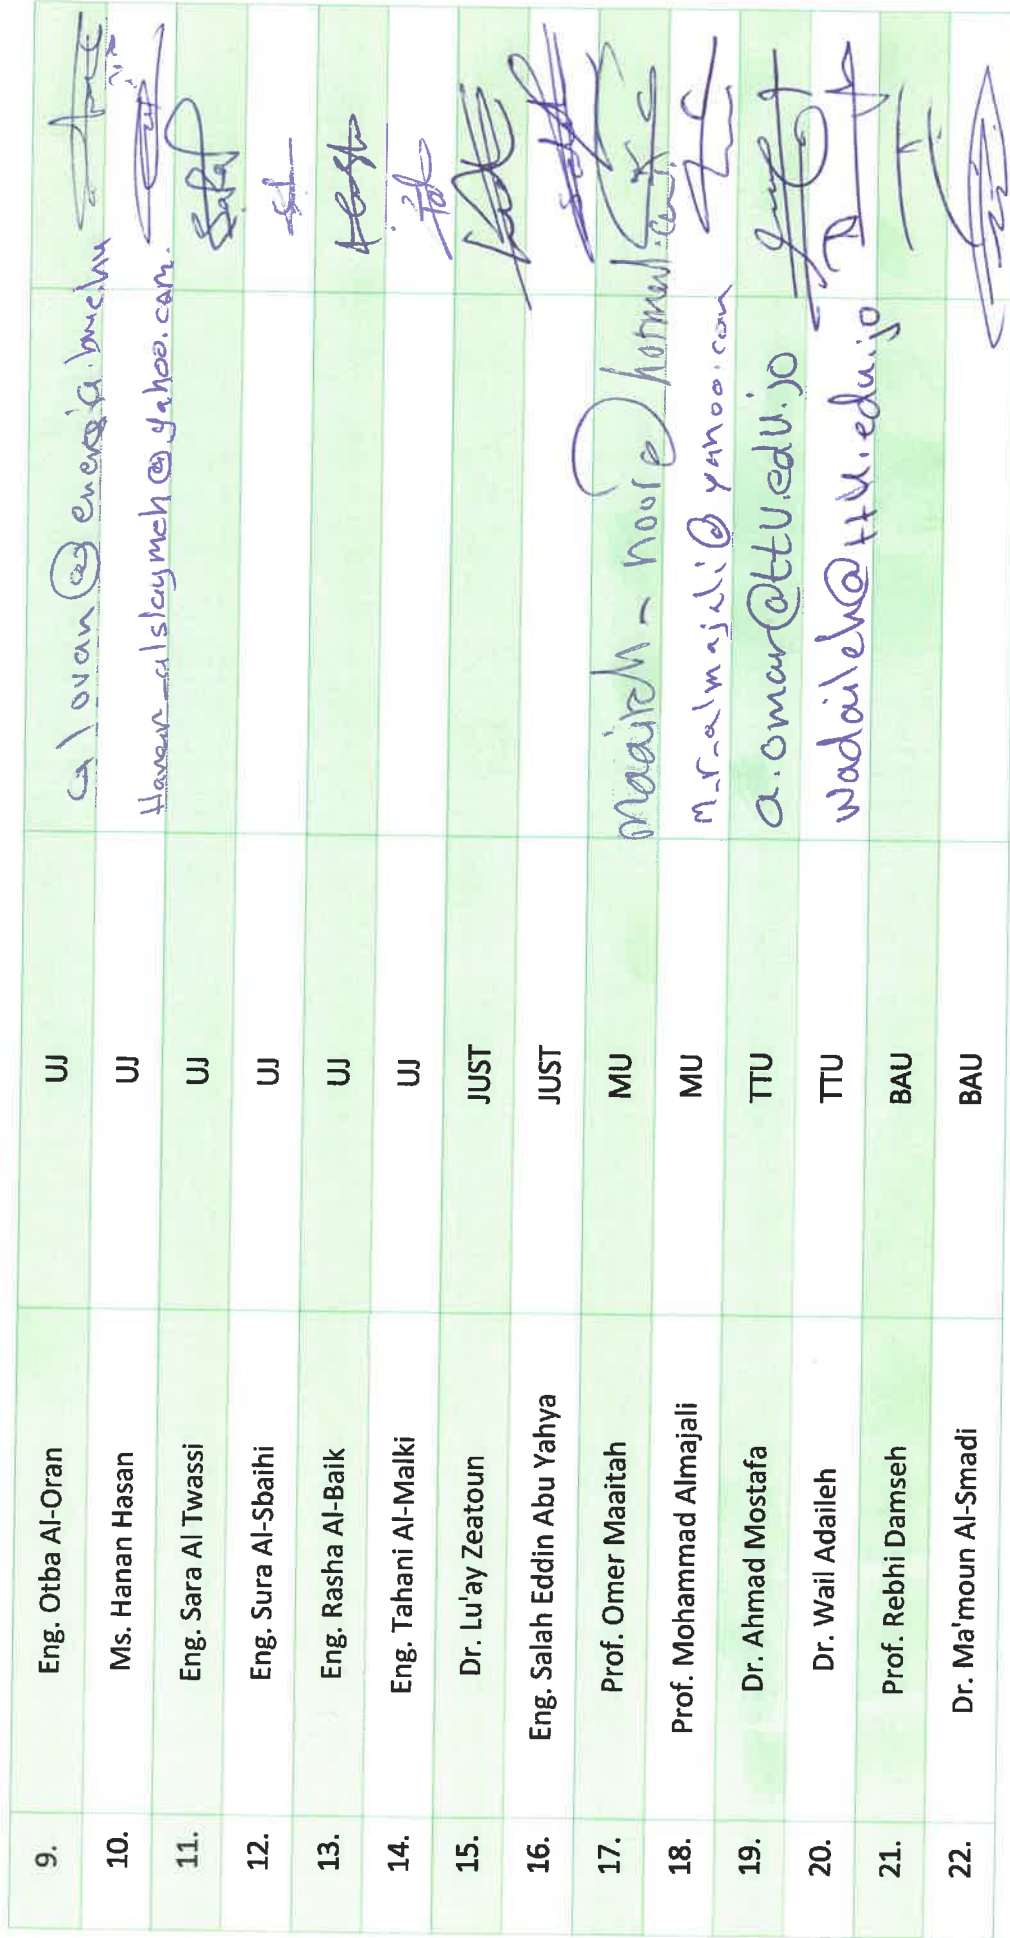 9. Eng. Otba Al-Oran UJ
10. Ms. Hanan Hasan UJ @yahoo.com
11. Eng. Sara Al Twassi UJ
12. Eng. Sura Al-Sbaihi UJ
13. Eng. Rasha Al-Baik UJ
14. Eng. Tahani Al-Malki UJ
15. Dr. Lu'ay Zeatoun JUST
16. Eng. Salah Eddin Abu Yahya JUST
17. Prof. Omer Maaitah MU
18. Prof. Mohammad Almajali MU m_r_almajali@yahoo.com
19. Dr. Ahmad Mostafa TTU a.omar@ttu.edu.jo
20. Dr. Wail Adaileh TTU wadaileh@ttu.edu.jo
21. Prof. Rebhi Damseh BAU
22. Dr. Ma'moun Al-Smadi BAU